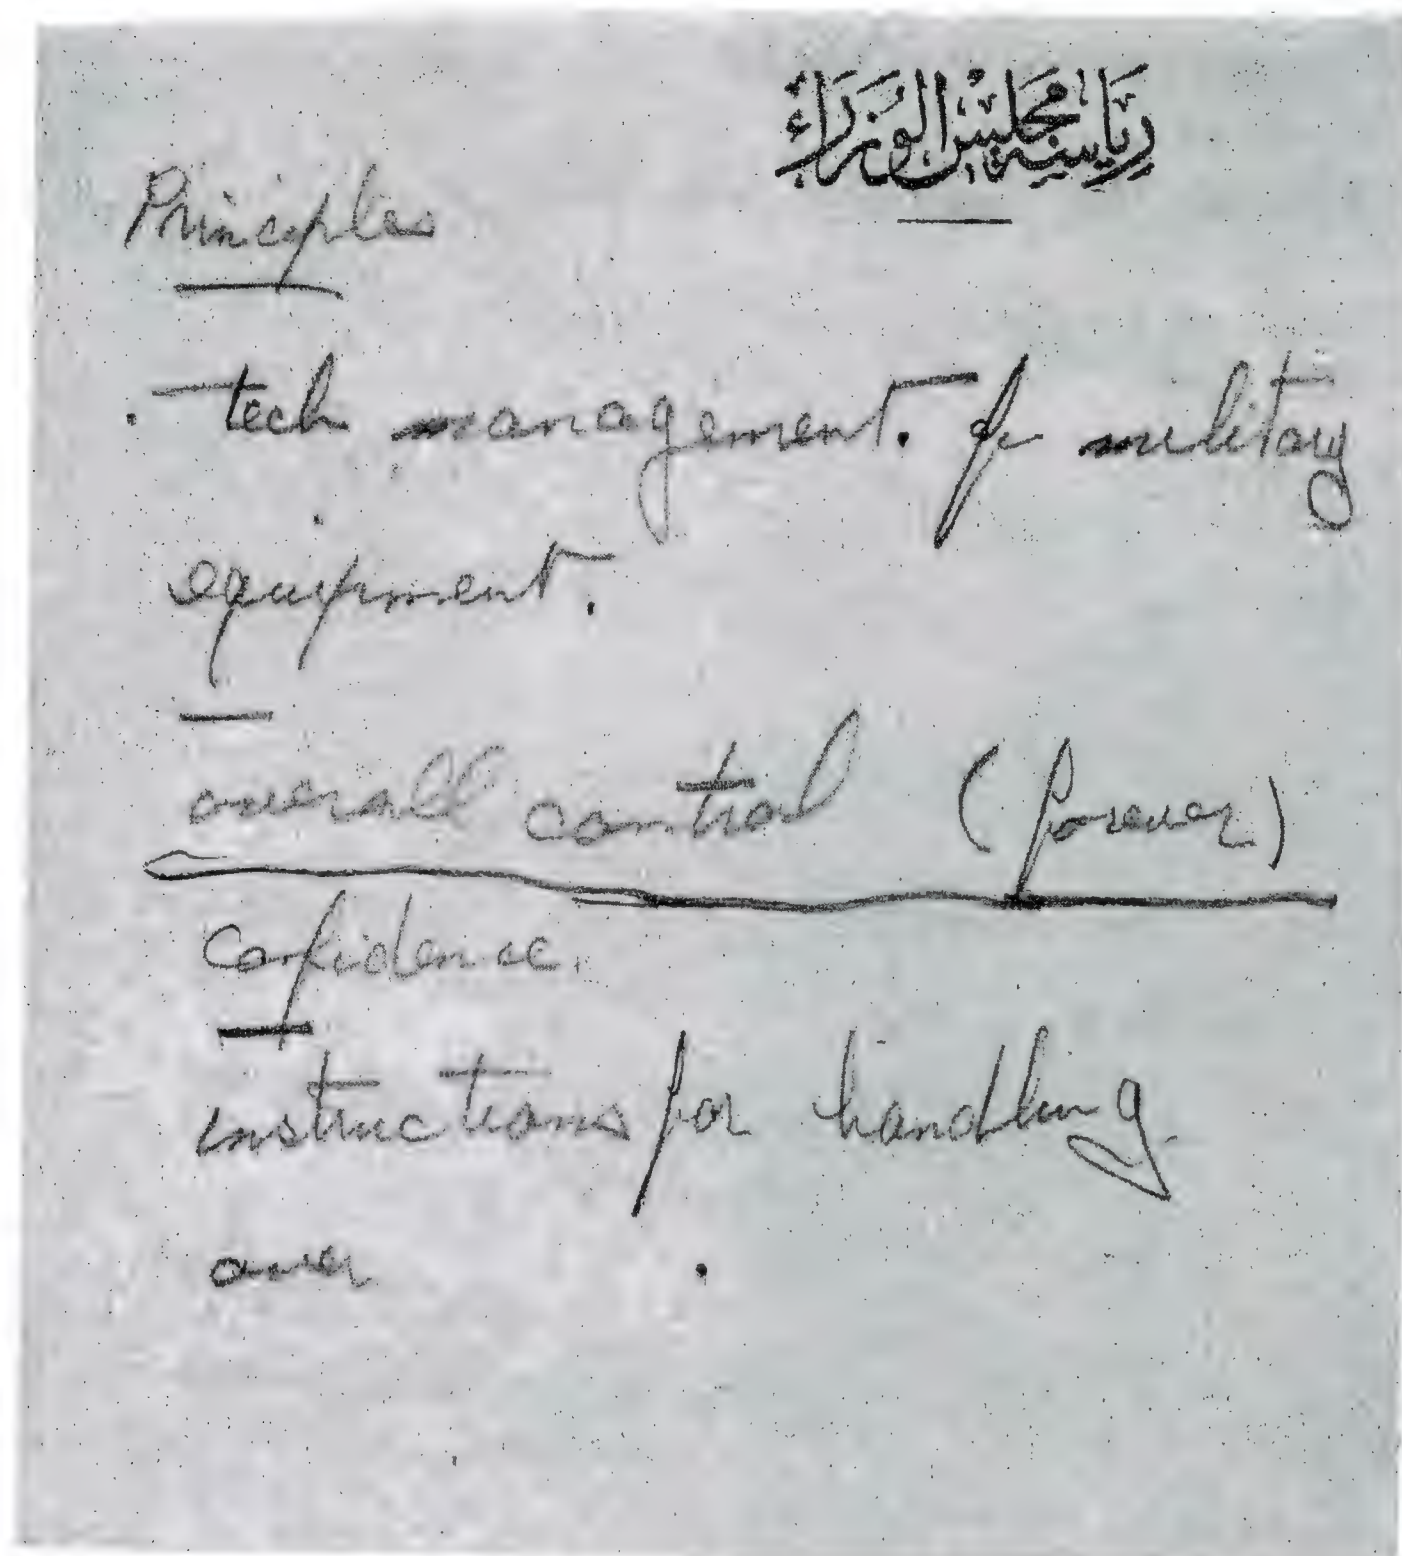 رياسة مجلس الوزراء
Principles
. tech management. for military
equipment.
overall control (forever)
Confidence.
instructions for handling
over .